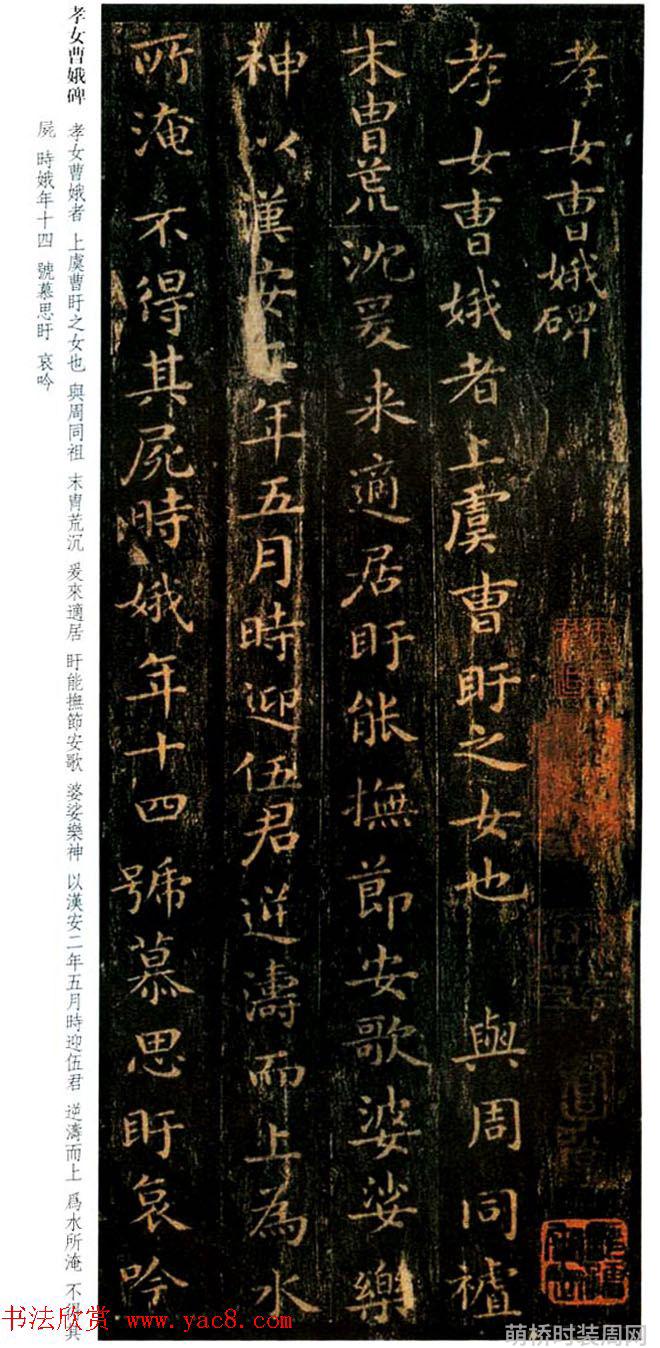 孝女曹娥碑
孝女曹娥者上虞曹盱之女也 與周同禮
末胄荒沈爰来適居盱能撫節安歌婆娑樂
神以漢安二年五月時迎伍君逆濤而上為水
所淹不得其屍時娥年十四號慕思盱哀吟
孝女曹娥碑
孝女曹娥者 上虞曹盱之女也 與周同祖 末胄荒沉 爰來適居 盱能撫節安歌 婆娑樂神 以漢安二年五月時迎伍君 逆濤而上 爲水所淹 不得其
屍 時娥年十四 號慕思盱 哀吟
书法欣赏 www.yac8.com
萌桥时装周网